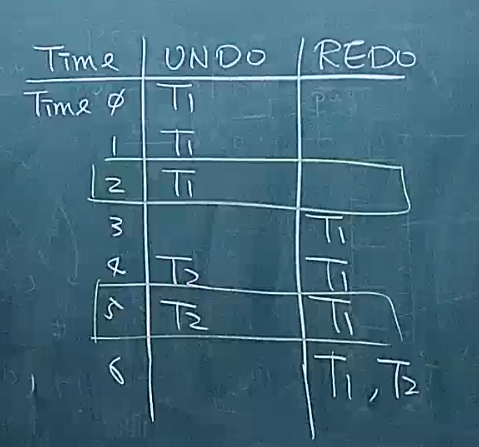 Time UNDO REDO
Time 0 T1
1 T1
2 T1
3 T1
4 T2 T1
5 T2 T1
6 T1, T2